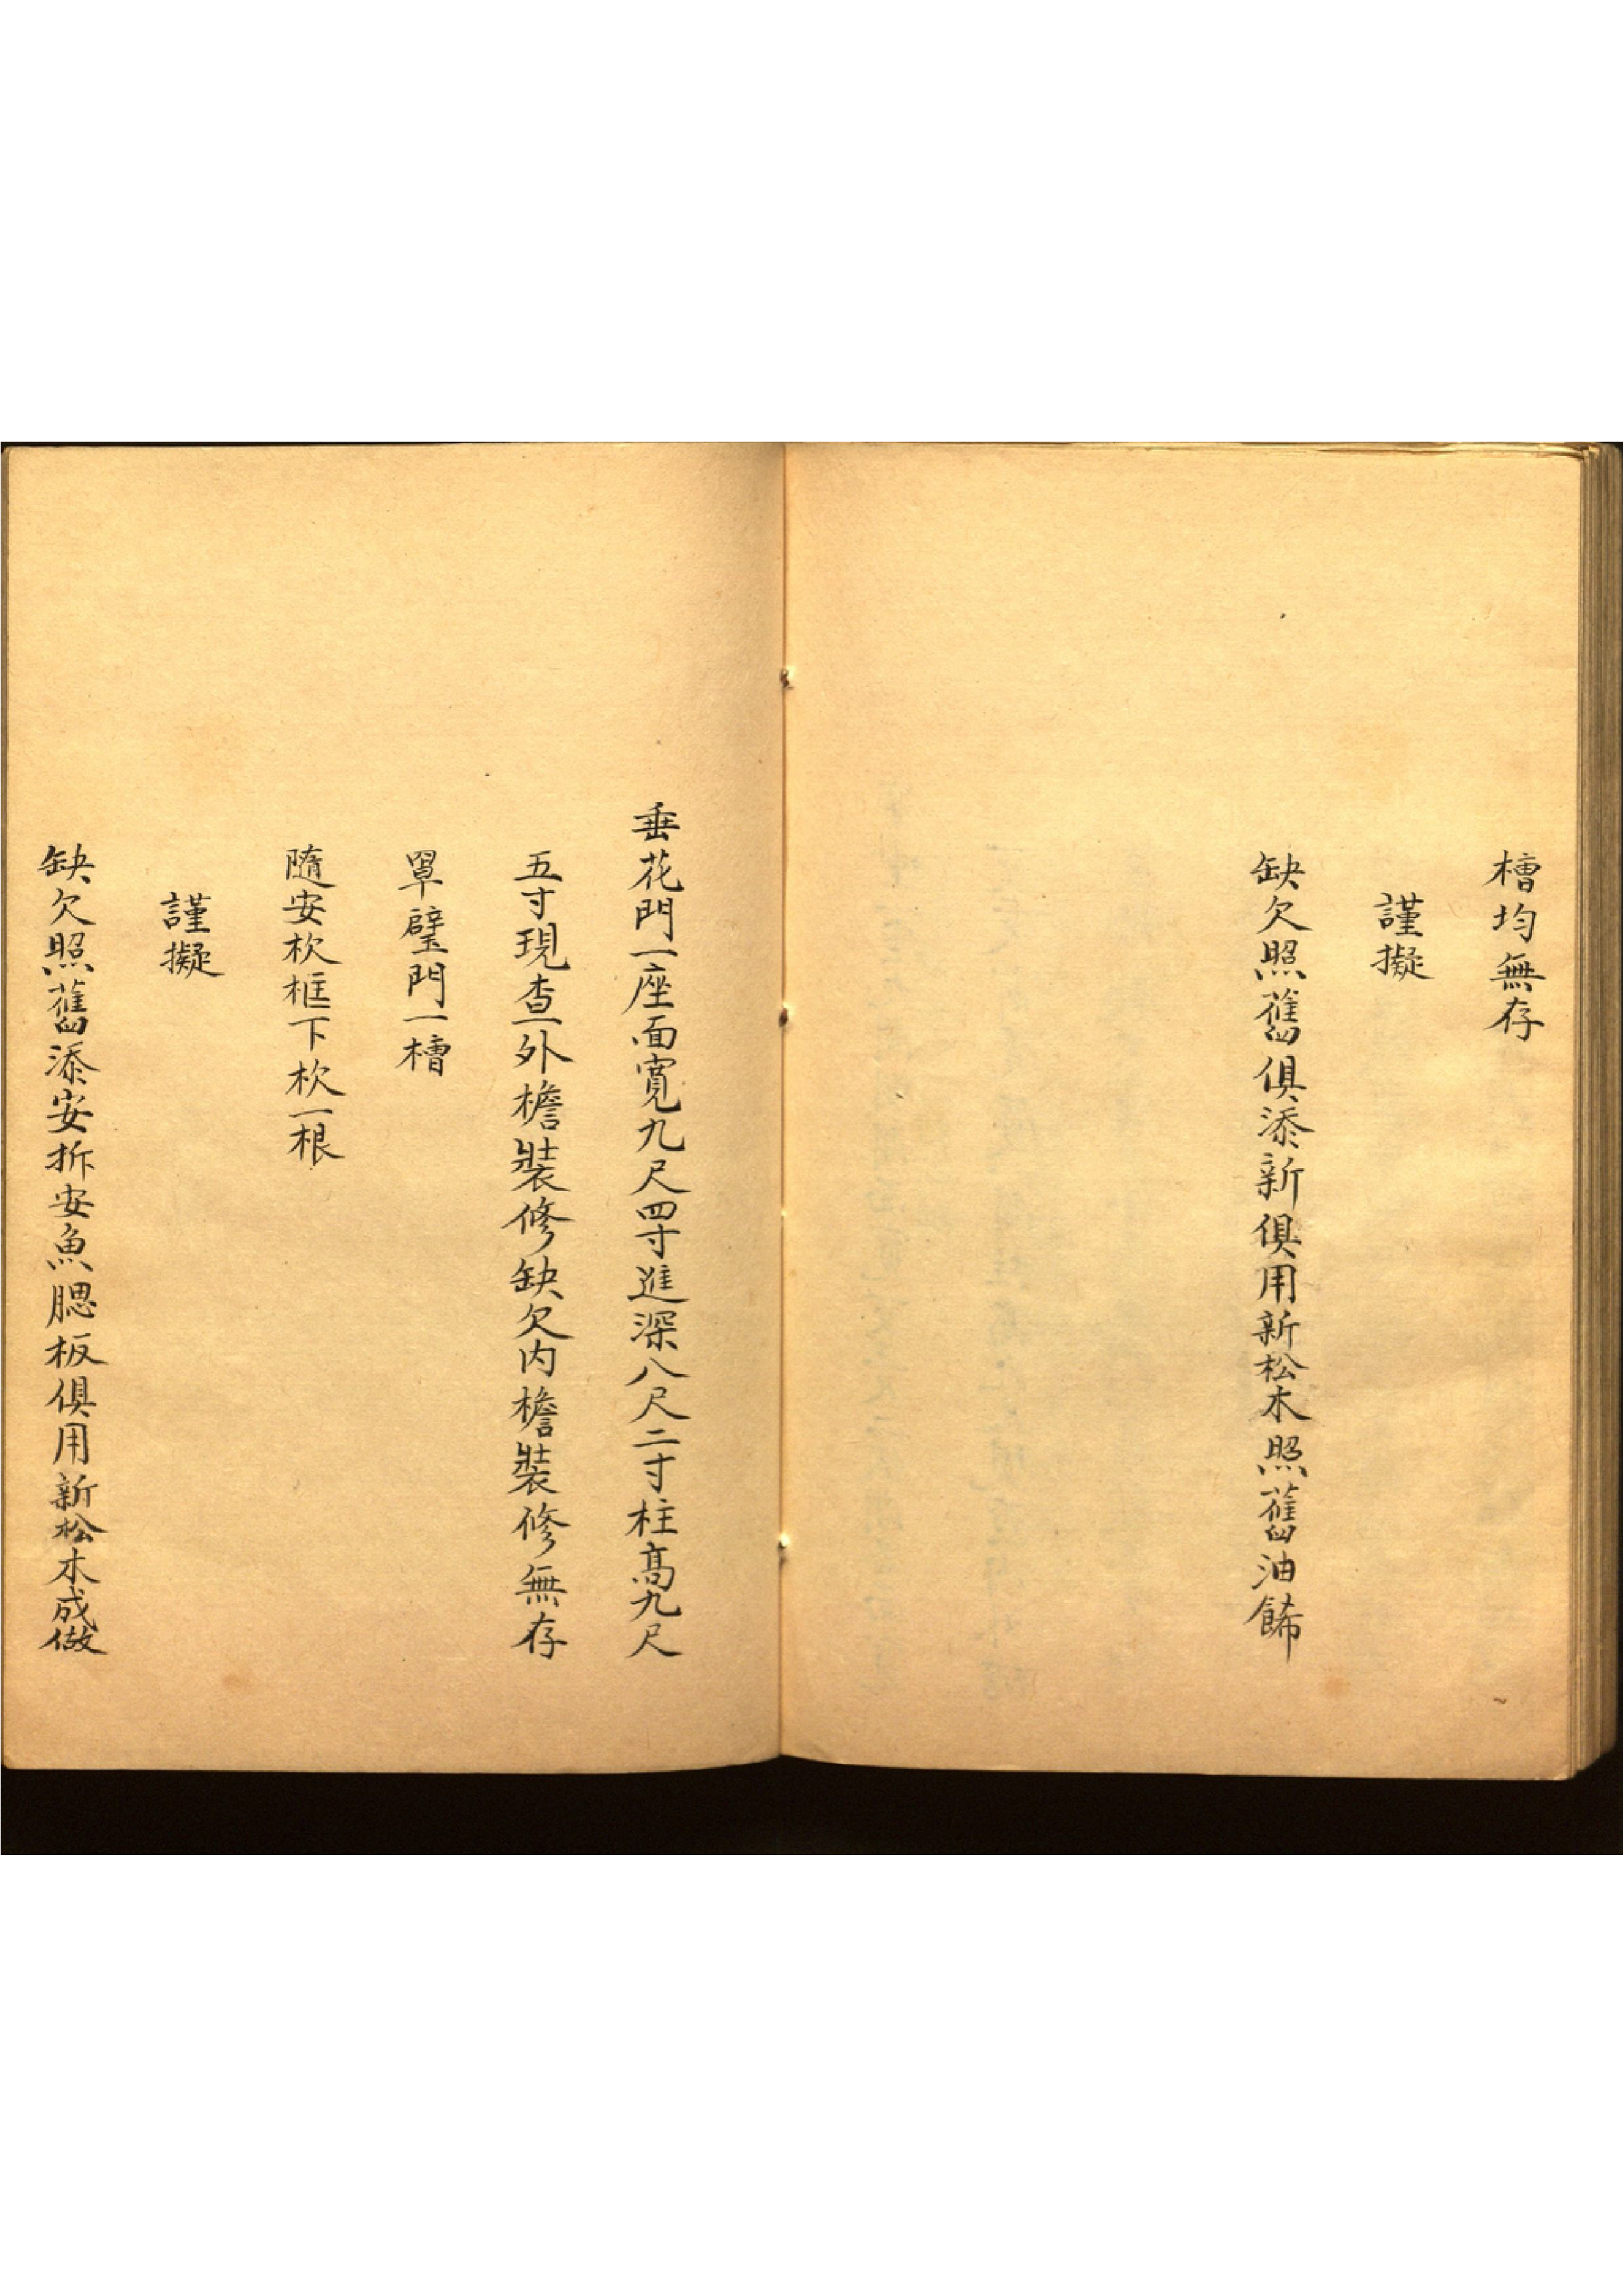 槽均無存
謹擬
缺欠照舊俱添新俱用新松木照舊油飾
垂花門一座面寬九尺四寸進深八尺二寸柱髙九尺
五寸現查外檐裝修缺欠内檐裝修無存
罩壁門一槽
隨安杴框下杴一根
謹擬
缺欠照舊添安拆安魚腮板俱用新松木成做